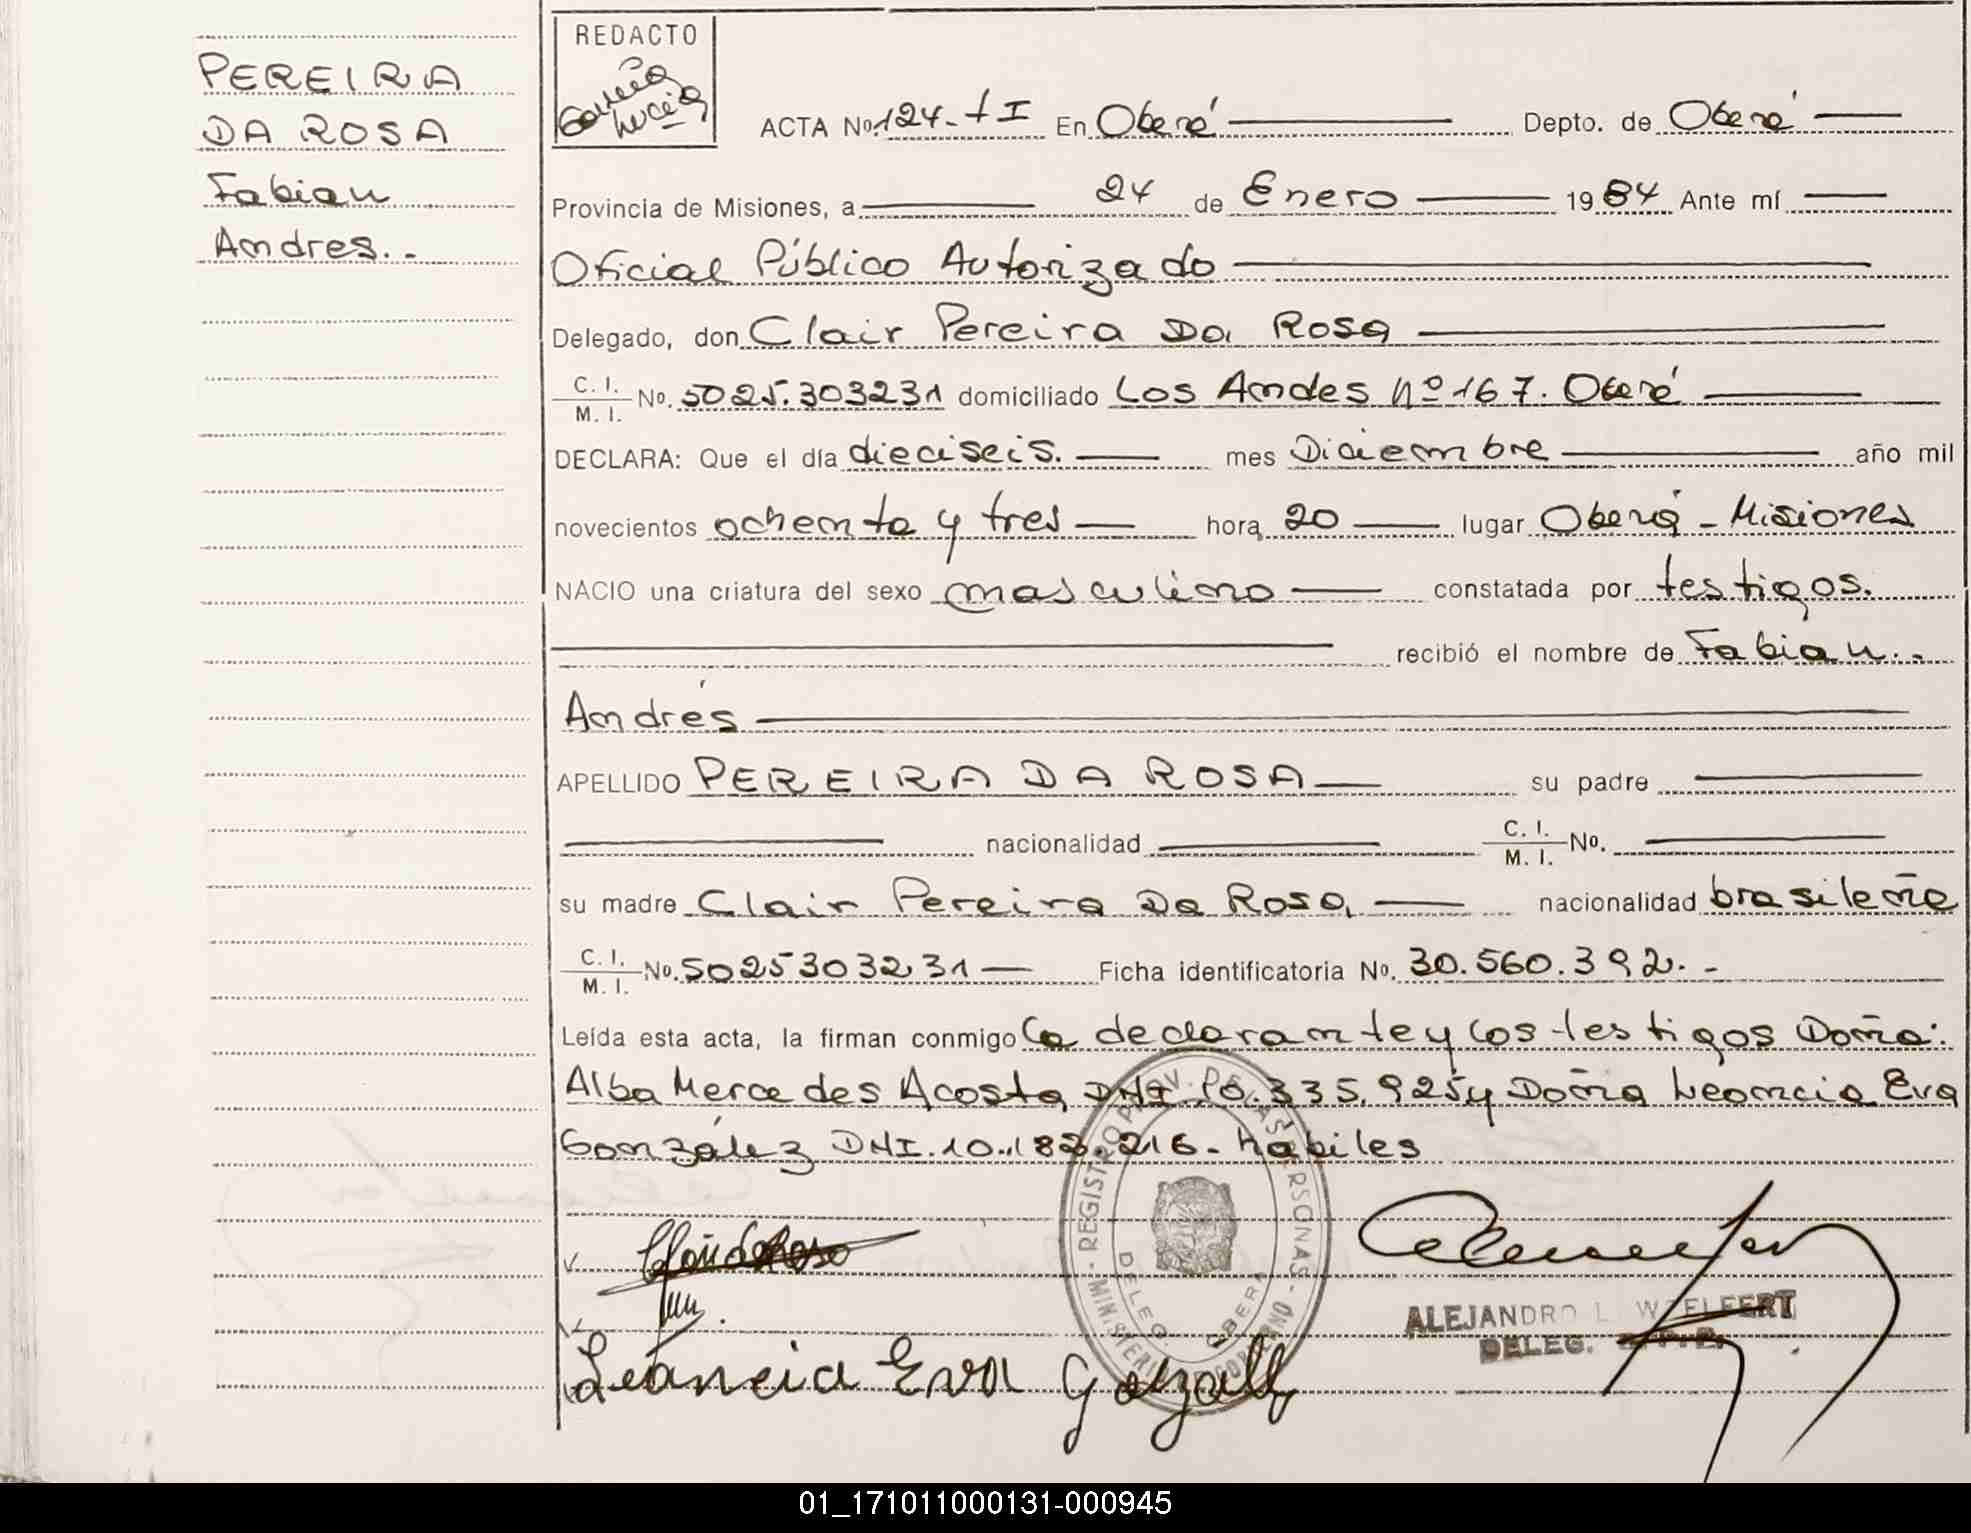 PEREIRA
DA ROSA
Fabian
Andres.-
REDACTO
García
Lucía
ACTA No. 124-tI En Oberá Depto. de Oberá
Provincia de Misiones, a 24 de Enero 1984 Ante mí
Oficial Público Autorizado
Delegado, don Clair Pereira Da Rosa
C. I. / M. I. No. 5025.303231 domiciliado Los Andes Nº 167. Oberá
DECLARA: Que el día dieciseis. mes Diciembre año mil
novecientos ochenta y tres hora 20 lugar Oberá - Misiones
NACIO una criatura del sexo masculino constatada por testigos.
recibió el nombre de Fabián.-
Andrés
APELLIDO PEREIRA DA ROSA su padre
nacionalidad C. I. / M. I. No.
su madre Clair Pereira Da Rosa nacionalidad brasileña
C. I. / M. I. No. 5025303231 Ficha identificatoria No. 30.560.392.-
Leída esta acta, la firman conmigo la declarante y los testigos Doña:
Alba Mercedes Acosta DNI 10.335.925 y Doña Leoncia Eva
González DNI. 10.183.216- hábiles
REGISTRO PROV. DE LAS PERSONAS
MINISTERIO GOBIERNO
DELEG. OBERA
ALEJANDRO L. WOELFERT
DELEG.
Leoncia Eva Gonzalez
01_171011000131-000945